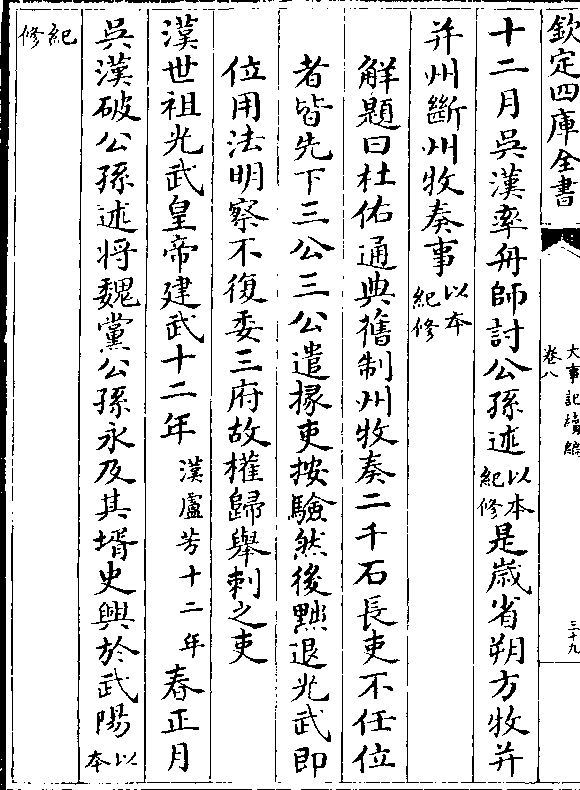 欽定四庫全書
大事記續編
卷八
三十九
十二月吳漢率舟師討公孫述以本紀修是歲省朔方牧并
并州斷州牧奏事以本紀修
解題曰杜佑通典舊制州牧奏二千石長吏不任位
者皆先下三公三公遣掾吏按驗然後黜退光武即
位用法明察不復委三府故權歸舉刺之吏
漢世祖光武皇帝建武十二年漢盧芳十二年春正月
吳漢破公孫述將魏黨公孫永及其壻史興於武陽以本
紀修